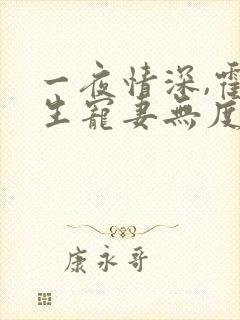 一夜情深,霍
生寵妻無度
康永哥